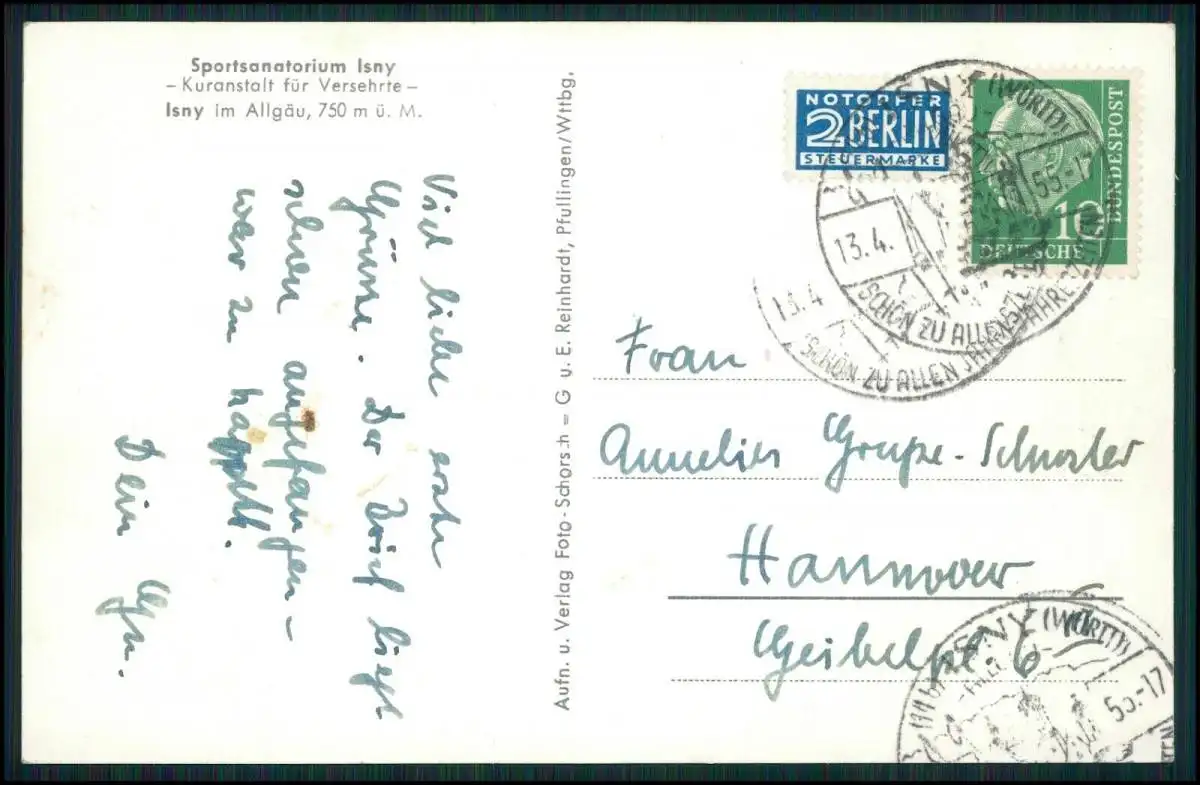 Sportsanatorium Isny
– Kuranstalt für Versehrte –
Isny im Allgäu, 750 m ü. M.
Viel liebe erste
Grüsse. Der Brief liegt
schon angefangen –
war zu
Dein
Aufn. u. Verlag Foto-Schorsch = G u. E. Reinhardt, Pfullingen/Wttbg.
NOTOPFER
2 BERLIN
STEUERMARKE
DEUTSCHE
BUNDESPOST
10
ISNY (WÜRTT)
13.4. 55-17
SCHÖN ZU ALLEN JAHRESZEITEN
13.4
SCHÖN ZU ALLEN JAHRESZEITEN
Frau
Annelies Grupe-
Hannover
Geibelpl 6
ISNY (WÜRTT)
55-17